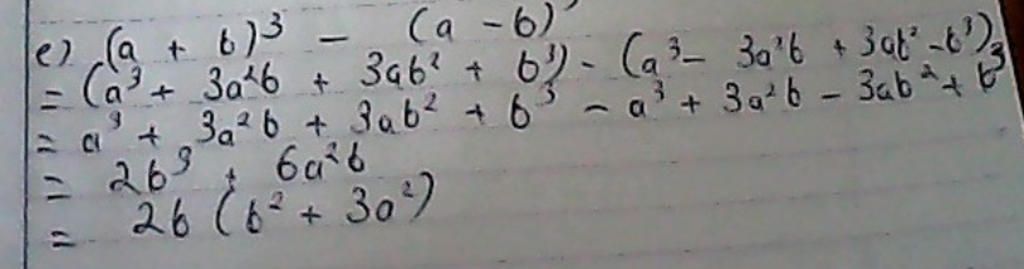 e) (a + b)³ - (a - b)³
= (a³ + 3a²b + 3ab² + b³) - (a³ - 3a²b + 3ab² - b³)
= a³ + 3a²b + 3ab² + b³ - a³ + 3a²b - 3ab² + b³
= 2b³ + 6a²b
= 2b (b² + 3a²)